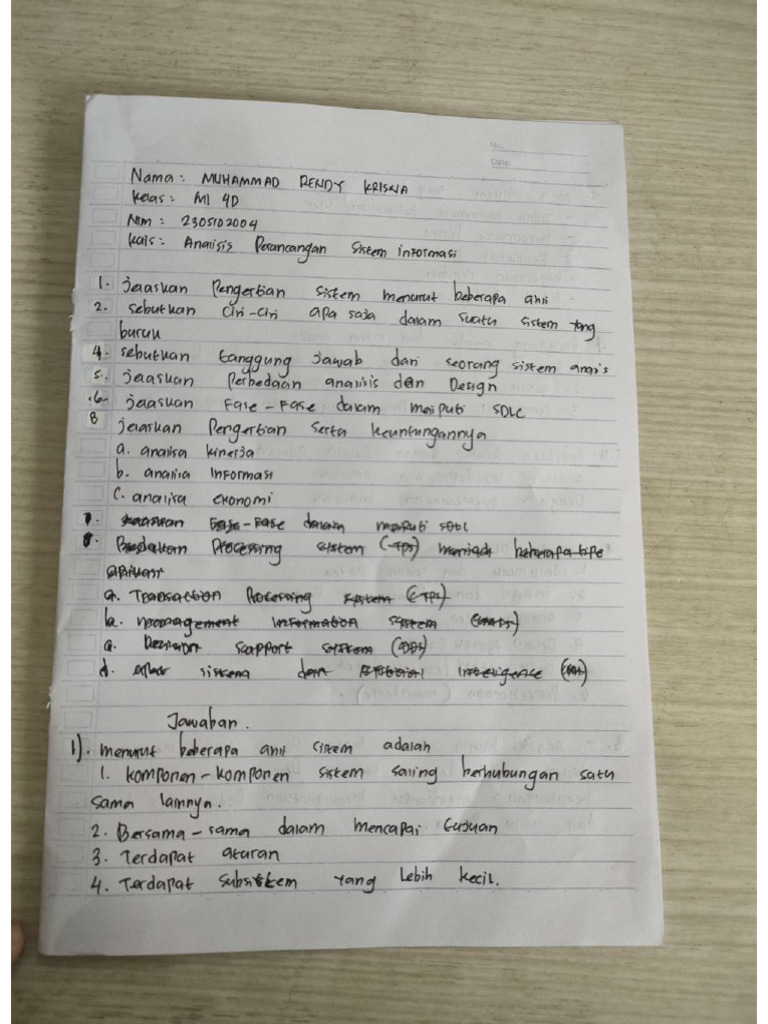 No.
Date
Nama : MUHAMMAD RENDY KRISNA
Kelas : MI 4D
Nim : 2305102004
Kuis : Analisis Perancangan Sistem informasi
1. jelaskan Pengertian sistem menurut beberapa ahli
2. sebutkan ciri-ciri apa saja dalam suatu sistem yang
buruk
4. sebutkan tanggung jawab dari seorang sistem analis
5. jelaskan Perbedaan analisis dan Design
6. jelaskan Fase-Fase dalam meliputi SDLC
8 jelaskan Pengertian serta keuntungannya
a. analisa kinerja
b. analisa informasi
c. analisa ekonomi
7. jelaskan Fase-Fase dalam meliputi SDLC
8. Processing sistem (TPS) menjadi beberapa tipe
aplikasi
a. Transaction Processing system (TPS)
b. management information system
a. Decision support system
d. sistem dan Artificial Intelligence
Jawaban.
1). menurut beberapa ahli sistem adalah
1. komponen-komponen sistem saling berhubungan satu
sama lainnya.
2. Bersama-sama dalam mencapai tujuan
3. Terdapat aturan
4. Terdapat subsistem yang lebih kecil.